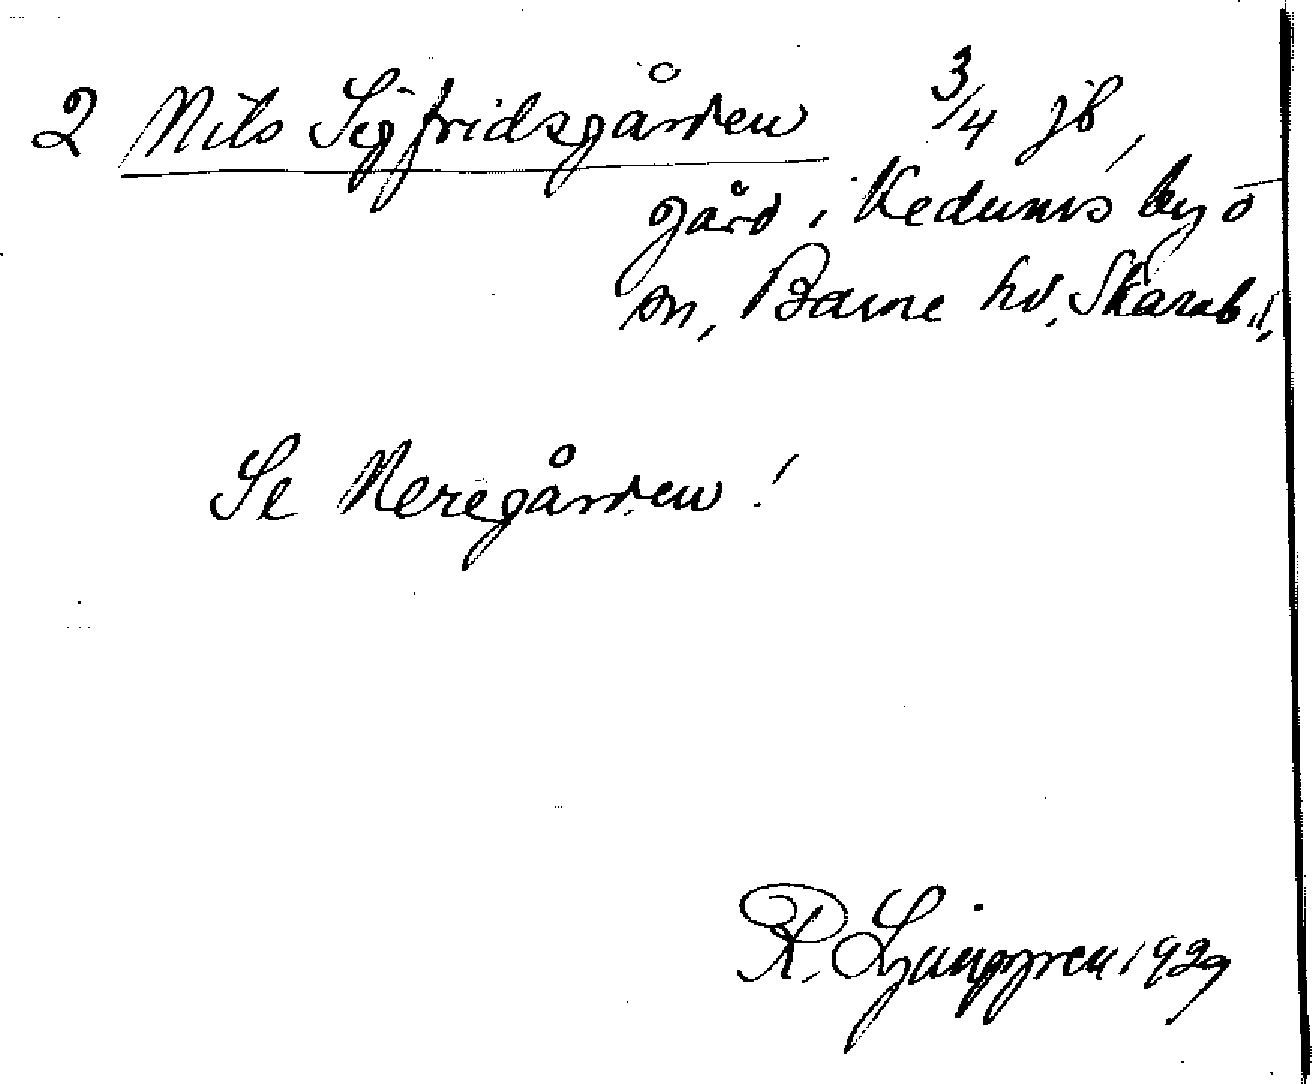 2 Nils Sigfridsgården 3/4 jb,
gård i Kedums by o
sn, Barne hd. Skarab. l.
Se Neregården!
R. Ljunggren 1929